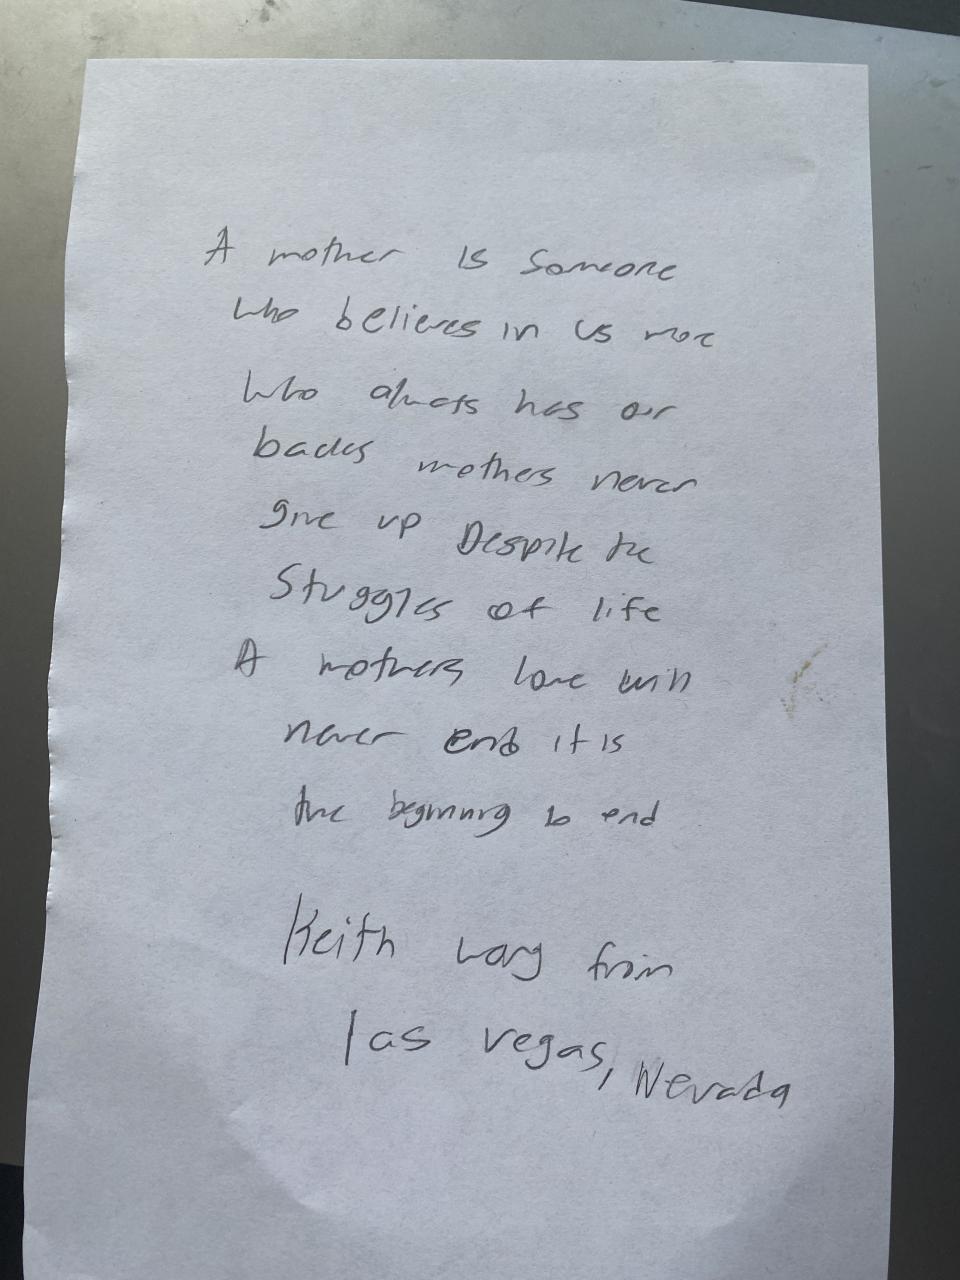 A mother is someone
who believes in us more
who always has our
backs mothers never
give up Despite the
Stuggles of life
A mothers love will
never end it is
the beginning to end
Keith wang from
las vegas, Nevada